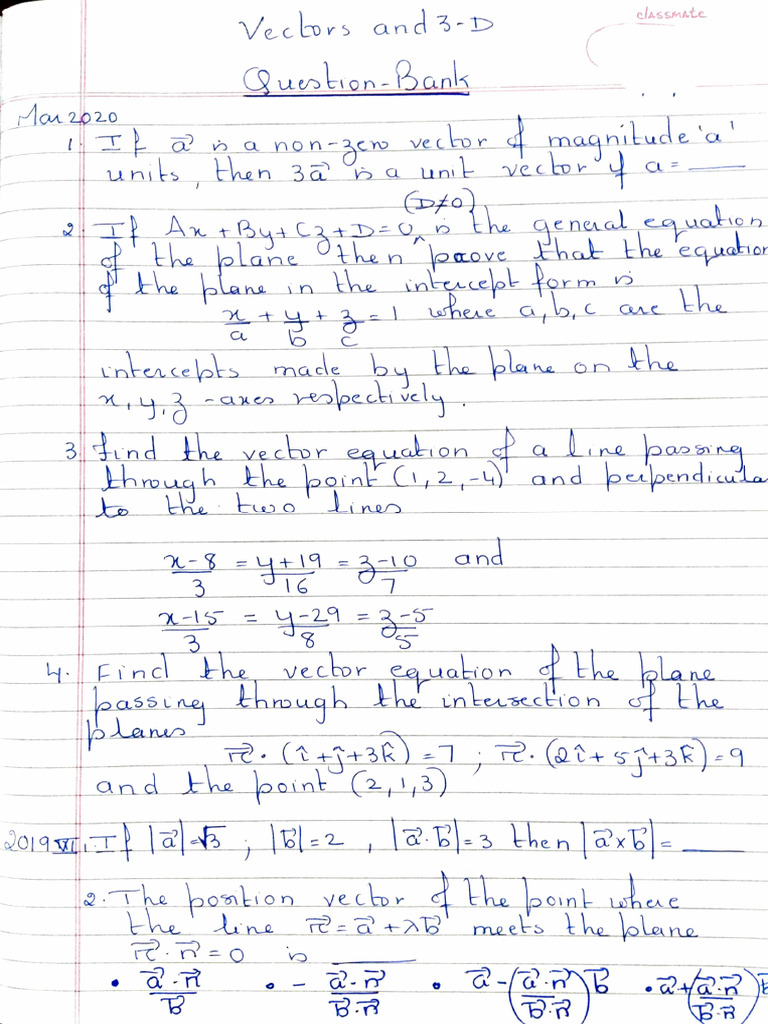 classmate
Vectors and 3-D
Question-Bank
Mar 2020
1. If a⃗ is a non-zero vector of magnitude 'a'
units, then 3a⃗ is a unit vector if a = ____
(D≠0)
2. If Ax + By + Cz + D = 0 ^ is the general equation
of the plane then prove that the equation
of the plane in the intercept form is
x/a + y/b + z/c = 1 where a, b, c are the
intercepts made by the plane on the
x, y, z -axes respectively.
3. Find the vector equation of a line passing
through the point (1, 2, -4) and perpendicula
to the two lines
x-8/3 = y+19/16 = z-10/7 and
x-15/3 = y-29/8 = z-5/5
4. Find the vector equation of the plane
passing through the intersection of the
planes
r⃗·(î+ĵ+3k̂) = 7 ; r⃗·(2î+5ĵ+3k̂) = 9
and the point (2, 1, 3)
2019 VI 1. If |a⃗| = √3 ; |b⃗| = 2 , |a⃗·b⃗| = 3 then |a⃗×b⃗| = ____
2. The position vector of the point where
the line r⃗ = a⃗ + λb⃗ meets the plane
r⃗·n⃗ = 0 is ____
• a⃗·n⃗/b⃗ • - a⃗·n⃗/b⃗·n⃗ • a⃗ - (a⃗·n⃗/b⃗·n⃗) b⃗ • a⃗ + (a⃗·n⃗/b⃗·n⃗) b⃗